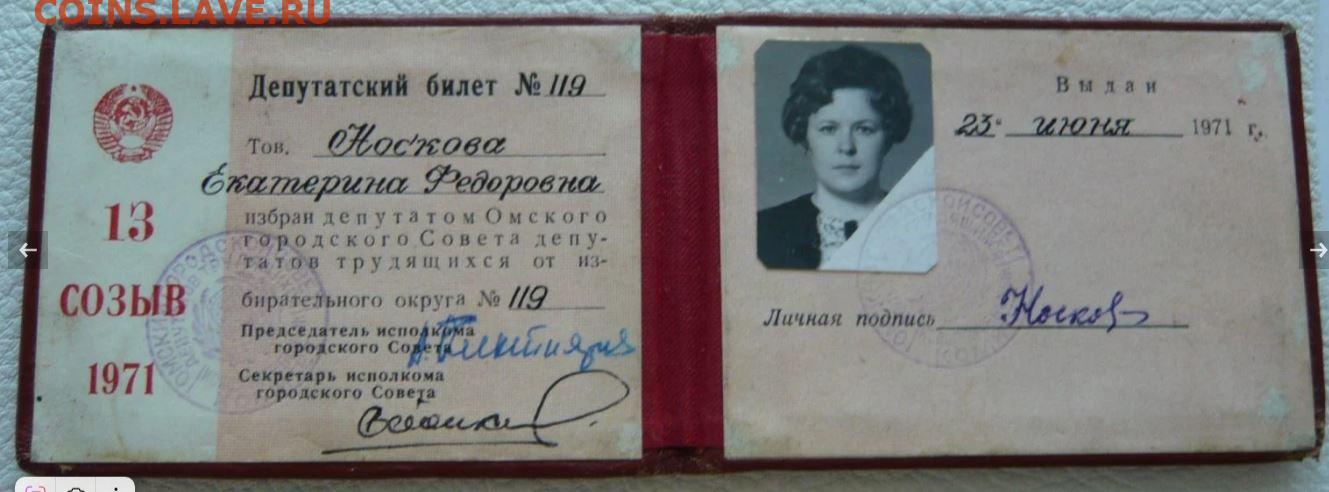 COINS.LAVE.RU
Депутатский билет № 119
Тов. Носкова
Екатерина Федоровна
избран депутатом Омского
городского Совета депу-
татов трудящихся от из-
бирательного округа № 119
Председатель исполкома
городского Совета
Секретарь исполкома
городского Совета
13
СОЗЫВ
1971
Выдан
23 июня 1971 г.
Личная подпись